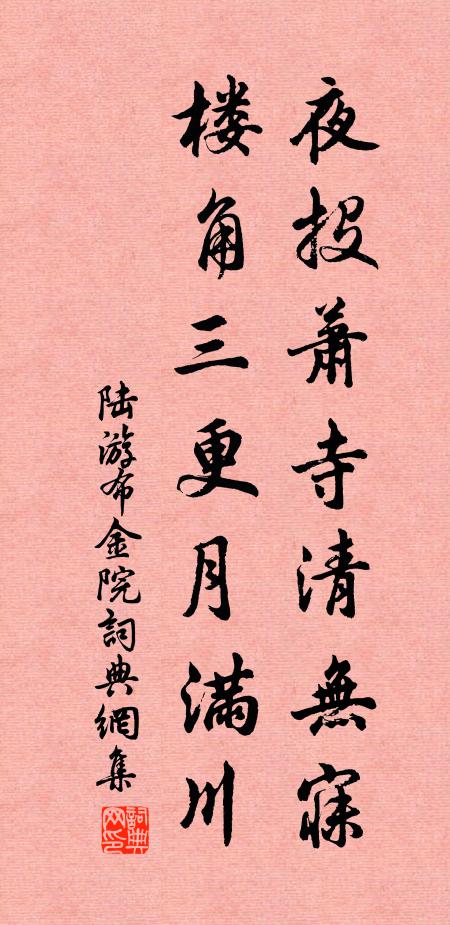 夜投萧寺清無寐
楼角三更月满川
陆游布金院詞典網集
詞典網印